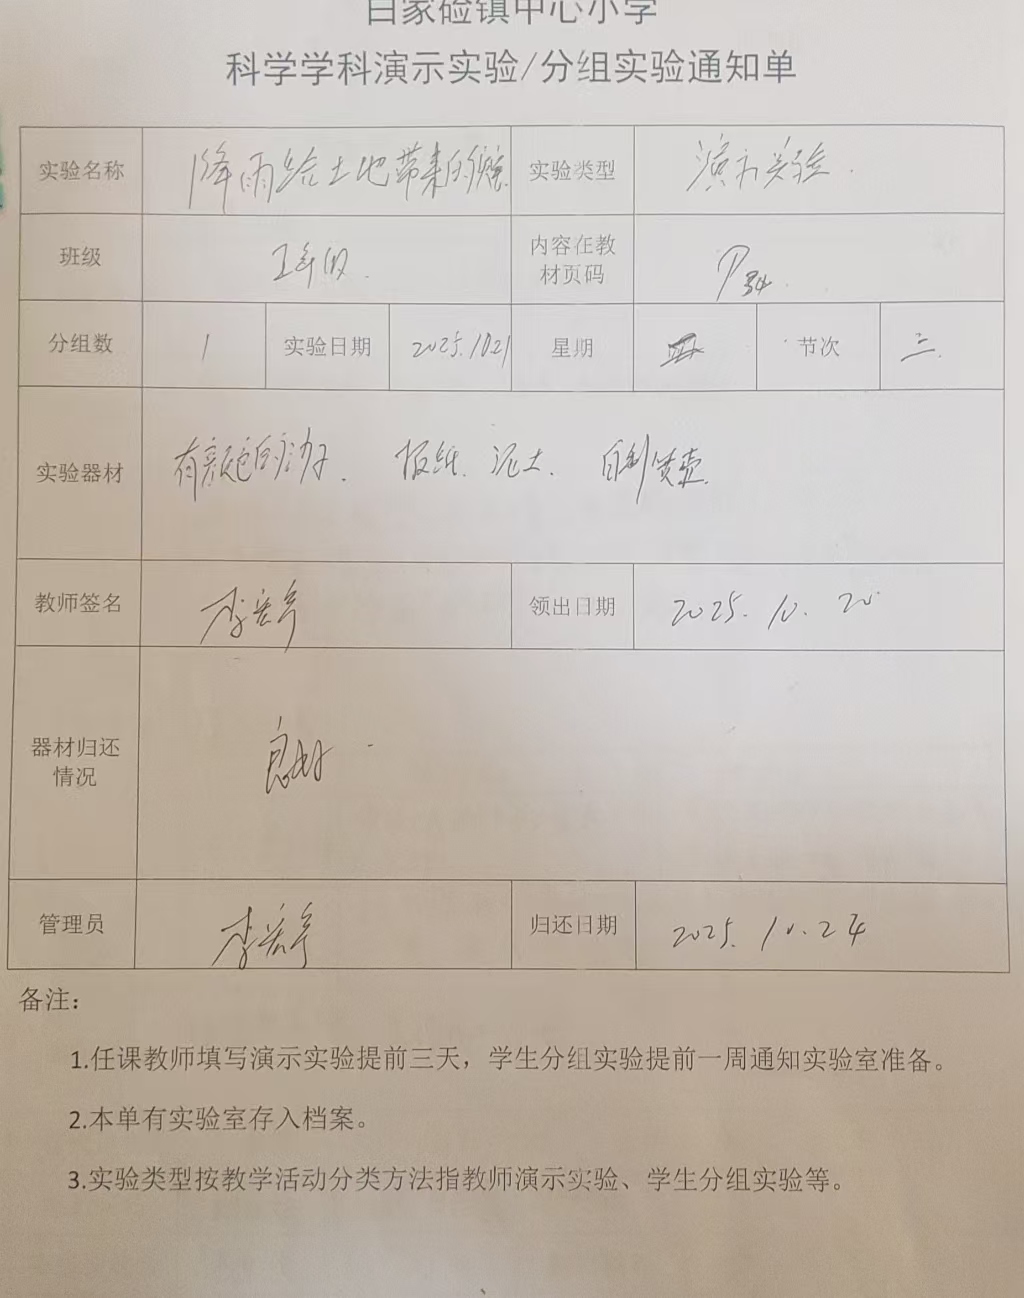 白家硷镇中心小学
科学学科演示实验/分组实验通知单
实验名称 降雨给土地带来的 实验类型 演示实验.
班级 五年级. 内容在教材页码 P34.
分组数 1 实验日期 2025.10.21 星期 节次 三.
实验器材 有颜色的沙子. 报纸. 泥土.
教师签名 李 领出日期 2025.10.20
器材归还情况 良好.
管理员 李 归还日期 2025.10.24
备注：
1.任课教师填写演示实验提前三天，学生分组实验提前一周通知实验室准备。
2.本单有实验室存入档案。
3.实验类型按教学活动分类方法指教师演示实验、学生分组实验等。